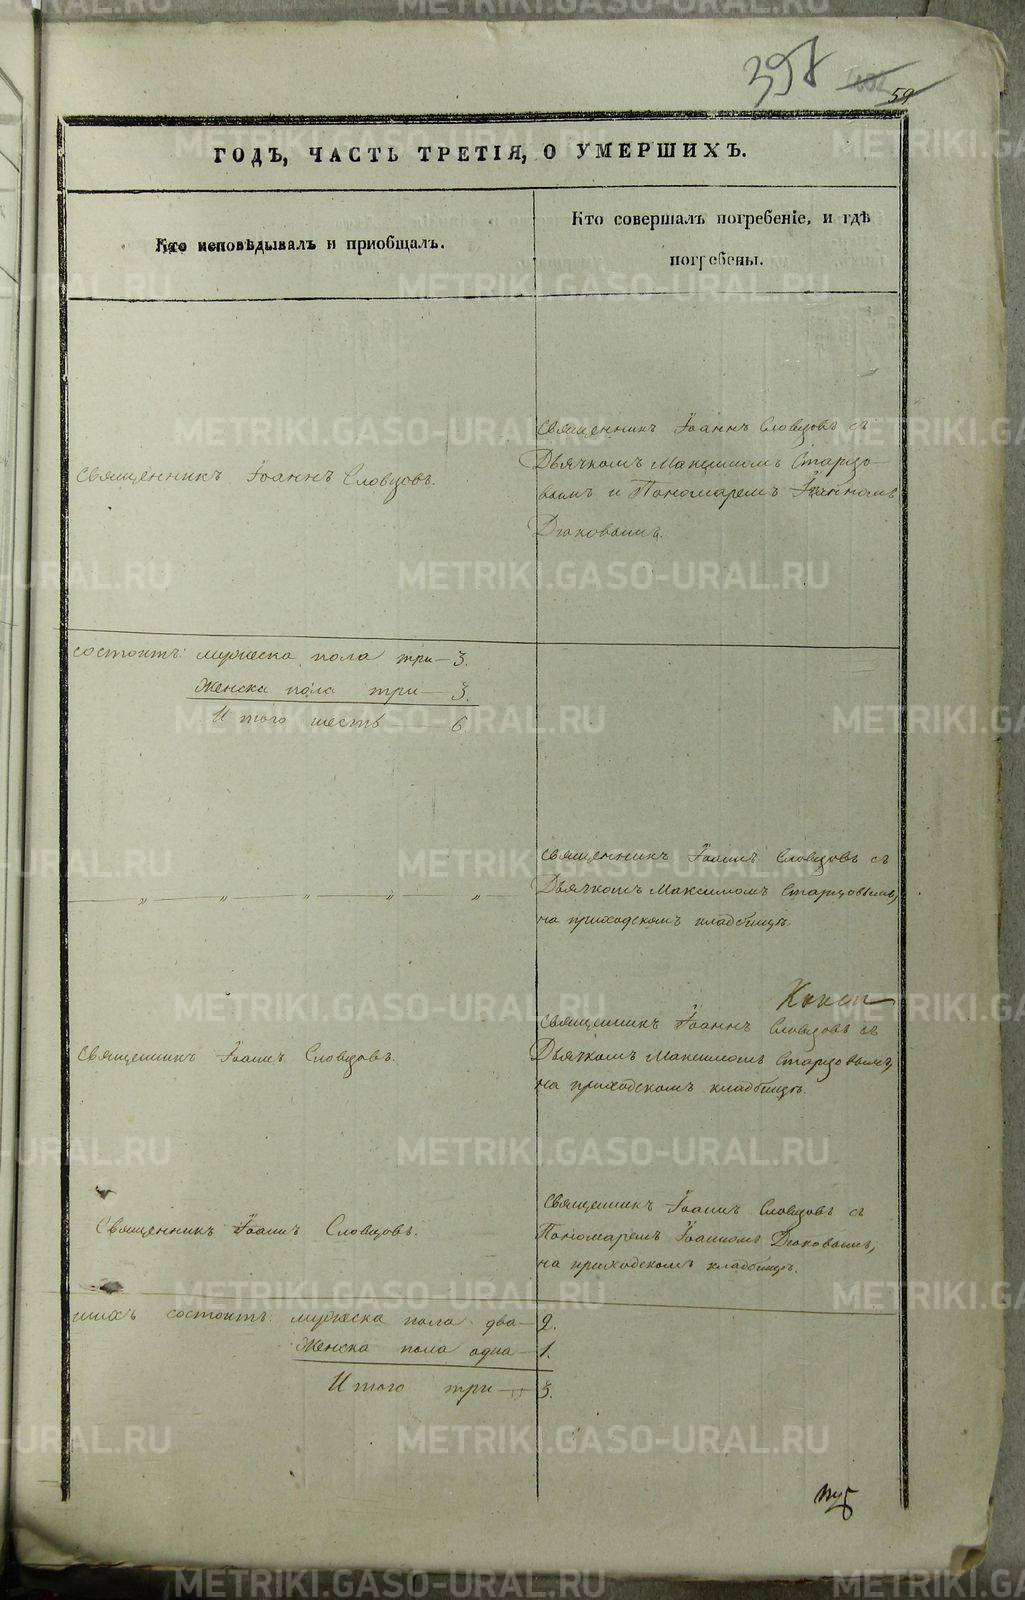 398
59
ГОДЪ, ЧАСТЬ ТРЕТІЯ, О УМЕРШИХЪ.
Кто исповѣдывалъ и приобщалъ.
Кто совершалъ погребеніе, и гдѣ
погребены.
Священникъ Іоаннъ Словцовъ.
Священникъ Іоаннъ Словцовъ съ
Дьячкомъ Максимомъ Старцо-
вымъ и Пономаремъ Іоанномъ
Дюковымъ.
состоитъ: мужеска пола три — 3.
Женска пола три — 3.
Итого шесть 6.
Священникъ Іоаннъ Словцовъ съ
Дьячкомъ Максимомъ Старцовымъ,
на приходскомъ кладбищѣ.
Священникъ Іоаннъ Словцовъ.
Священникъ Іоаннъ Словцовъ съ
Дьячкомъ Максимомъ Старцовымъ,
на приходскомъ кладбищѣ.
Священникъ Іоаннъ Словцовъ.
Священникъ Іоаннъ Словцовъ съ
Пономаремъ Іоанномъ Дюковымъ,
на приходскомъ кладбищѣ.
шихъ состоитъ: мужеска пола два — 2.
Женска пола одна — 1.
Итого три — 3.
METRIKI.GASO-URAL.RU